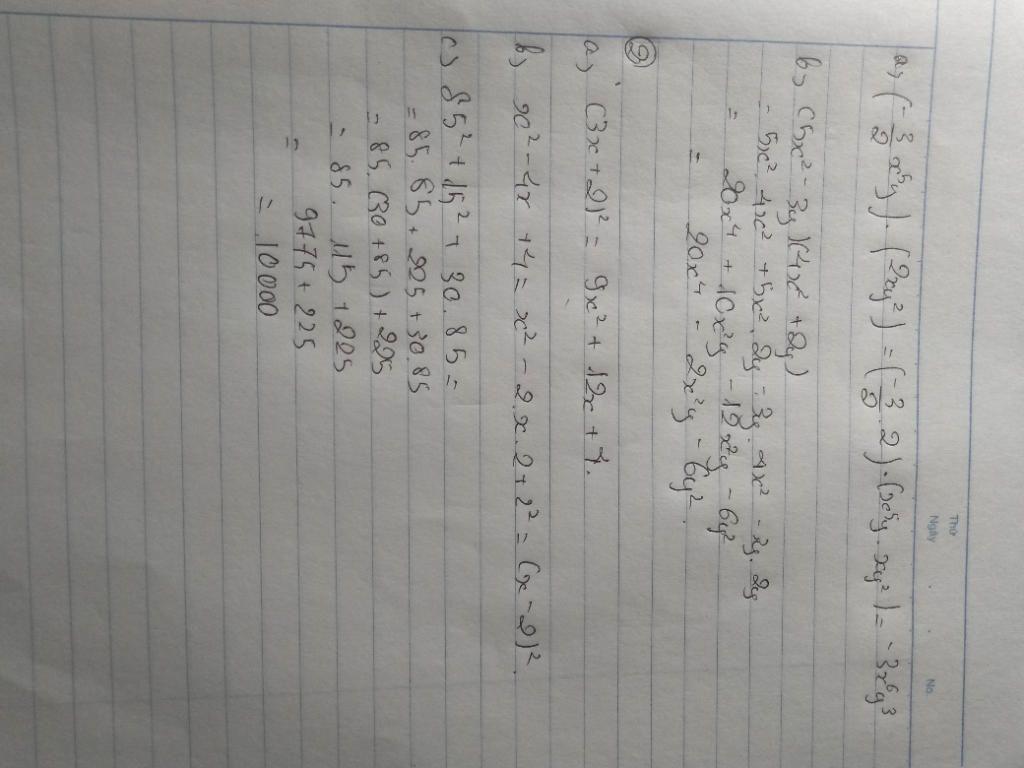 Thứ
Ngày No.
a, (-3/2 x⁵y) . (2xy²) = (-3/2 . 2) . (x⁵y . xy²) = -3x⁶y³
b, (5x² - 3y)(4x² + 2y)
= 5x². 4x² + 5x². 2y - 3y. 4x² - 3y. 2y
= 20x⁴ + 10x²y - 12x²y - 6y²
= 20x⁴ - 2x²y - 6y².
②
a, (3x + 2)² = 9x² + 12x + 4.
b, x² - 4x + 4 = x² - 2.x.2 + 2² = (x - 2)².
c, 85² + 15² + 30.85 =
= 85. 85 + 225 + 30 85
= 85. (30 + 85) + 225
= 85. 115 + 225
= 9775 + 225
= 10000